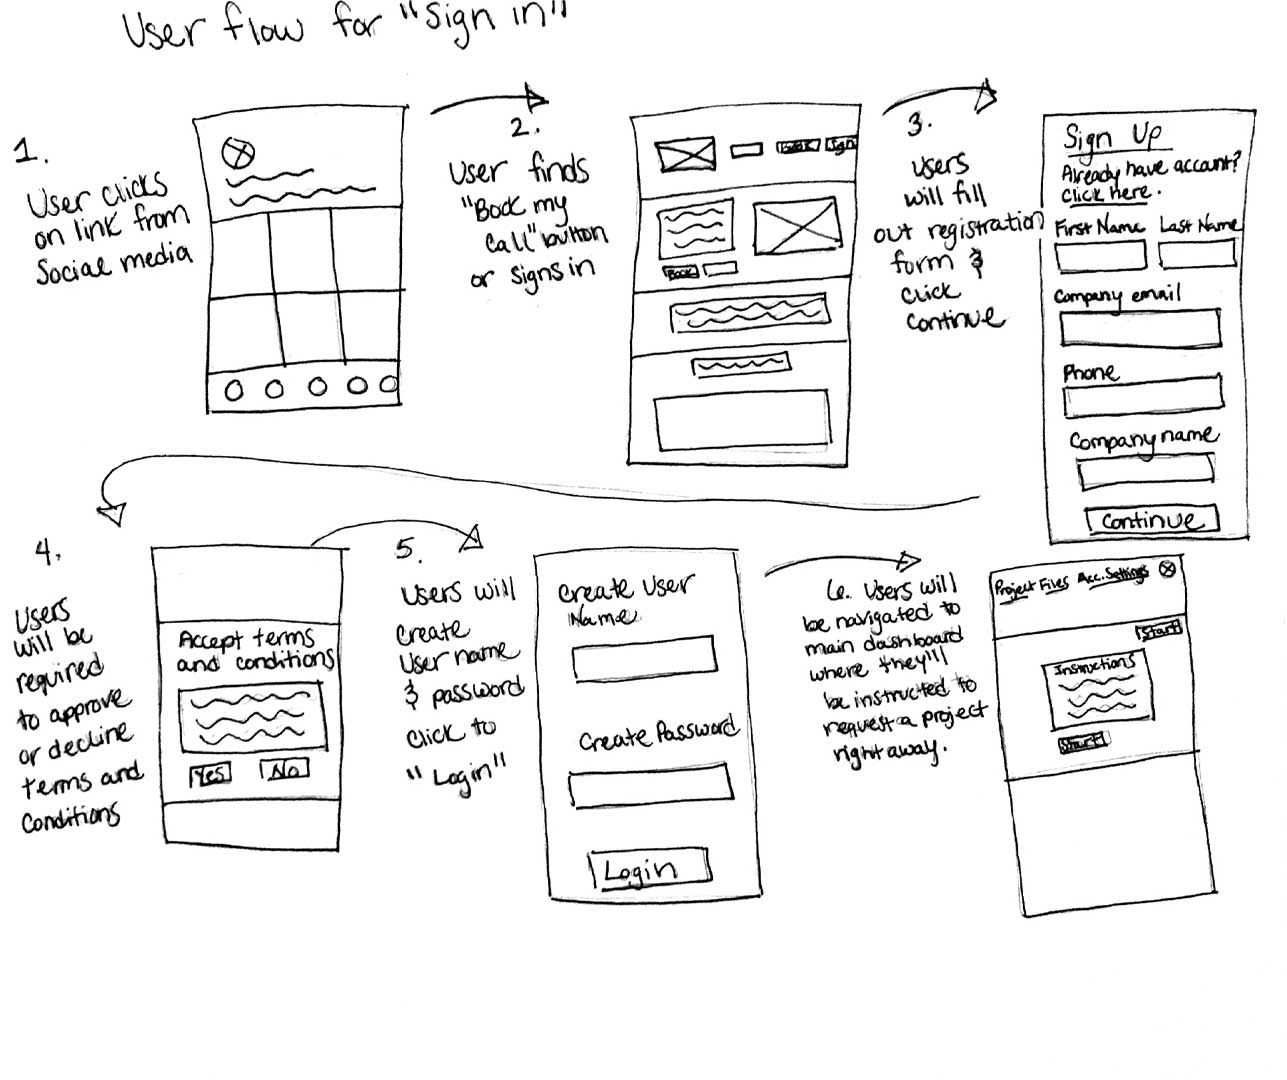 User flow for "Sign in"
1.
User clicks
on link from
Social media
2.
User finds
"Book my
Call" button
or signs in
Book
Sign
Book
3.
Users
will fill
out registration
form &
click
Continue
Sign Up
Already have account?
Click here.
First Name Last Name
Company email
Phone
Company name
Continue
4.
Users
will be
required
to approve
or decline
terms and
Conditions
Accept terms
and conditions
Yes No
5.
Users will
create
User name
& password
Click to
"Login"
Create User
Name
Create Password
Login
6. Users will
be navigated to
main dashboard
where they'll
be instructed to
request a project
right away.
Project Files Acc. Settings
Start
Instructions
Start